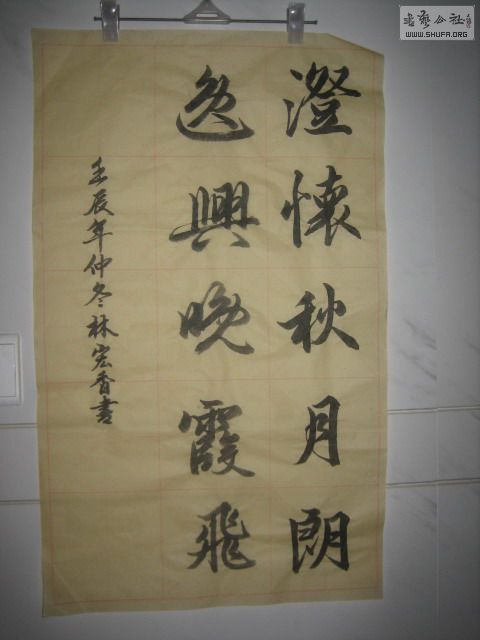 澄懷秋月朗
逸興晚霞飛
壬辰年仲冬林宏香書
書藝公社
WWW.SHUFA.ORG